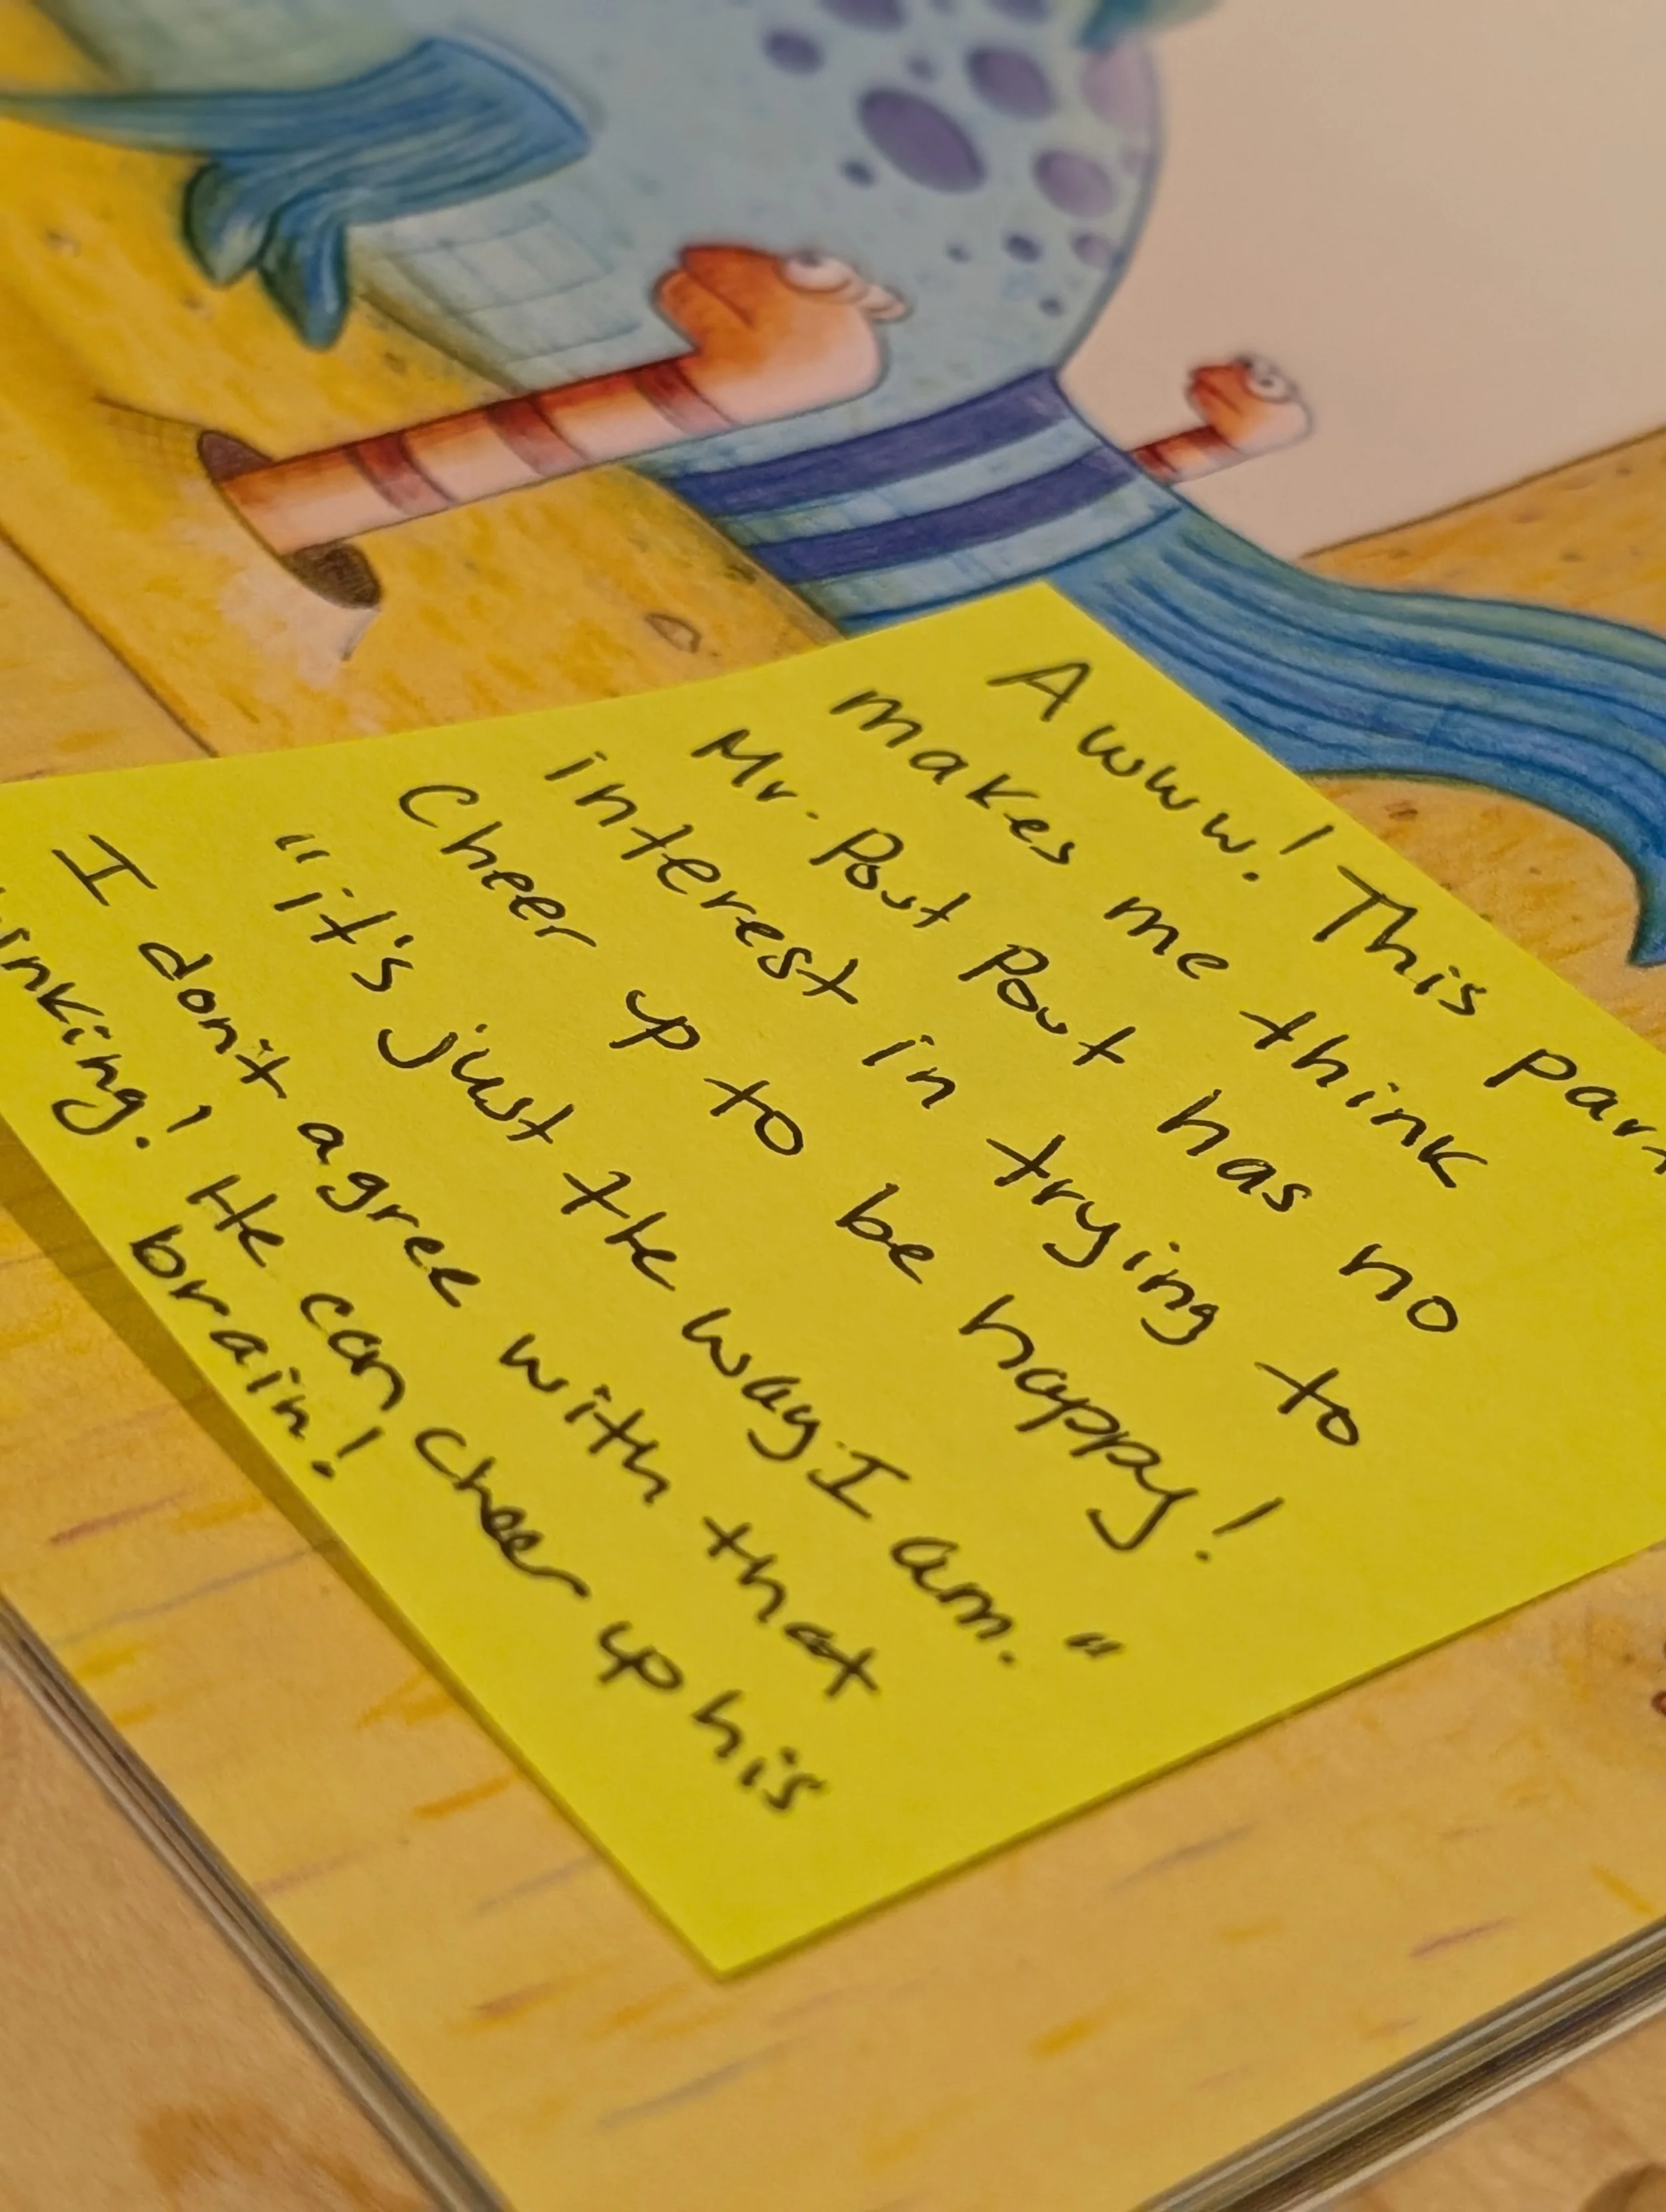 Awww! This part
makes me think
Mr. Pout Pout has no
interest in trying to
cheer up to be happy!
"it's just the way I am."
I don't agree with that
inking! He can cheer up his
brain!